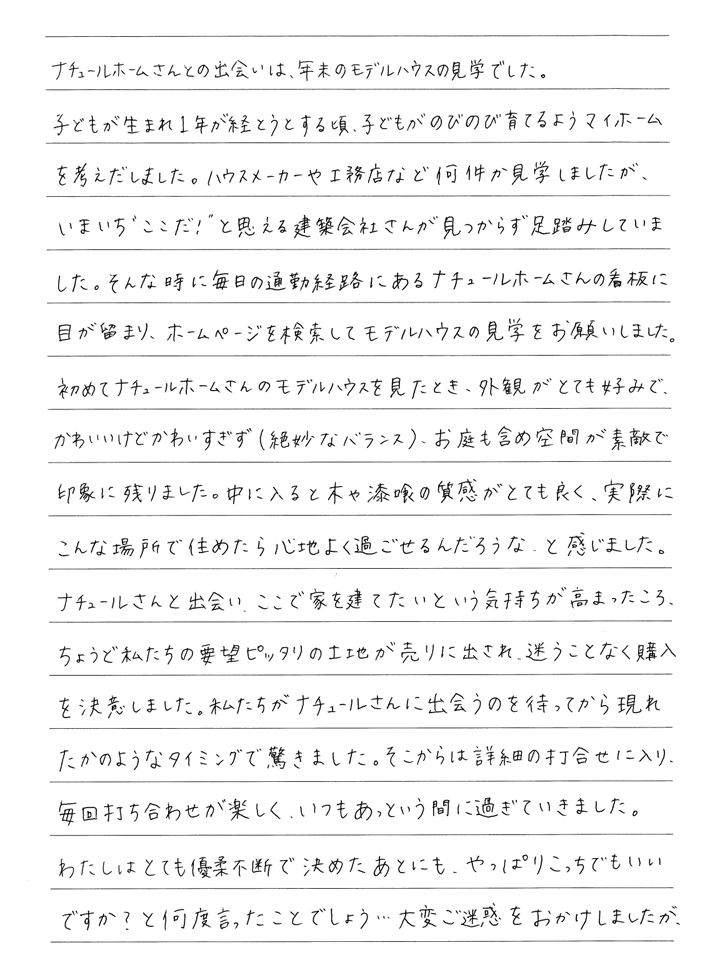 ナチュールホームさんとの出会いは、年末のモデルハウスの見学でした。
子どもが生まれ1年が経とうとする頃、子どもがのびのび育てるようマイホーム
を考えだしました。ハウスメーカーや工務店など何件か見学しましたが、
いまいち“ここだ!”と思える建築会社さんが見つからず足踏みしていま
した。そんな時に毎日の通勤経路にあるナチュールホームさんの看板に
目が留まり、ホームページを検索してモデルハウスの見学をお願いしました。
初めてナチュールホームさんのモデルハウスを見たとき、外観がとても好みで、
かわいいけどかわいすぎず(絶妙なバランス)、お庭も含め空間が素敵で
印象に残りました。中に入ると木や漆喰の質感がとても良く、実際に
こんな場所で住めたら心地よく過ごせるんだろうな、と感じました。
ナチュールさんと出会い、ここで家を建てたいという気持ちが高まったころ、
ちょうど私たちの要望ピッタリの土地が売りに出され、迷うことなく購入
を決意しました。私たちがナチュールさんに出会うのを待ってから現れ
たかのようなタイミングで驚きました。そこからは詳細の打合せに入り、
毎回打ち合わせが楽しく、いつもあっという間に過ぎていきました。
わたしはとても優柔不断で決めたあとにも、やっぱりこっちでもいい
ですか?と何度言ったことでしょう…大変ご迷惑をおかけしましたが、